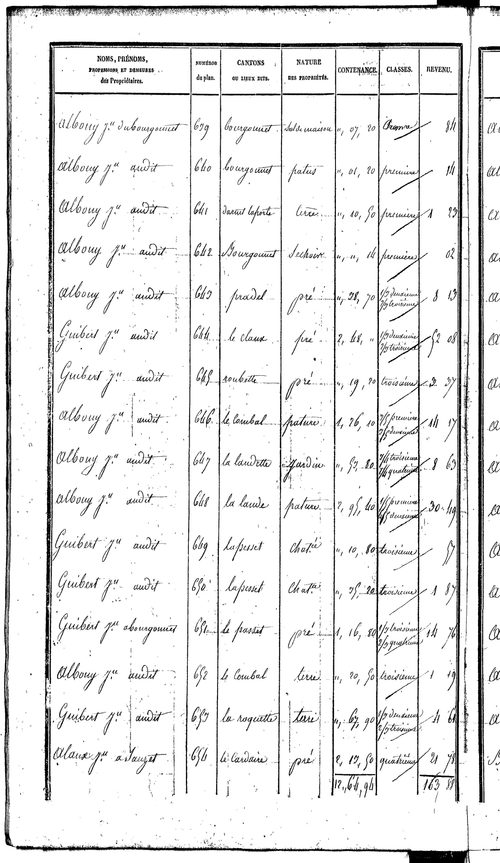 NOMS, PRÉNOMS, PROFESSIONS ET DEMEURES des Propriétaires. | NUMÉROS du plan. | CANTONS OU LIEUX DITS. | NATURE DES PROPRIÉTÉS. | CONTENANCE. | CLASSES. | REVENU.
albouy jn du bourgounet 639 bourgounet sol de maison „ 07, 20 84
albouy jn audit 640 bourgounet patus „ 01, 20 première 14
albouy jn audit 641 terre „ 10, 50 première 1 23
albouy jn audit 642 Bourgounet Sechoir „ „ 14 première 02
albouy jn audit 643 pradel pré „ 38, 70 1/3 deuxième 2/3 troisième 8 13
Guibert jn audit 644 le claux pré 2, 48, „ 1/3 deuxième 2/3 troisième 52 08
Guibert jn audit 645 roubette pré „ 19, 20 troisième 2 37
albouy jn audit 646 le combal pature 1, 26, 10 première deuxième 14 17
albouy jn audit 647 la landette jardin „ 53, 80 troisième quatrième 8 63
albouy jn audit 648 la lande pature 2, 95, 40 première deuxième 30 49
Guibert jn audit 649 lapesset „ 10, 80 troisième 57
Guibert jn audit 650 lapesset „ 25, 20 troisième 1 87
Guibert jn a bourgounet 651 le passet pré 1, 16, 80 1/3 troisième 2/3 quatrième 14 76
albouy jn audit 652 le Combal terre „ 20, 50 troisième 1 19
Guibert jn audit 653 la roquette terre „ 67, 90 1/3 deuxième 2/3 troisième 4 61
alaux jn a Sauzet 654 le Cardaire pré 2, 13, 50 quatrième 21 78
12, 64, 94 163 88